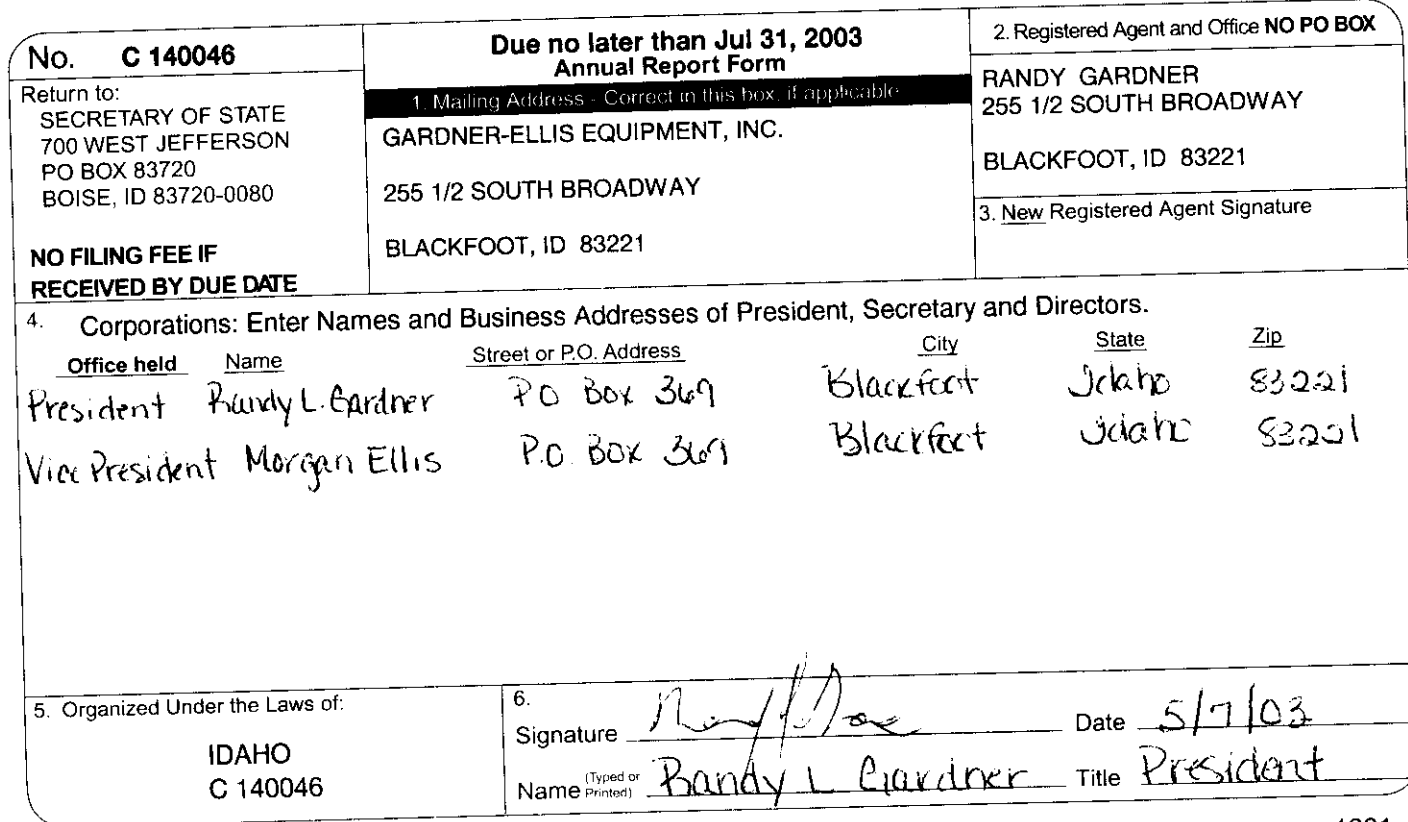 No. C 140046
Return to:
SECRETARY OF STATE
700 WEST JEFFERSON
PO BOX 83720
BOISE, ID 83720-0080
NO FILING FEE IF
RECEIVED BY DUE DATE
Due no later than Jul 31, 2003
Annual Report Form
1. Mailing Address - Correct in this box, if applicable
GARDNER-ELLIS EQUIPMENT, INC.
255 1/2 SOUTH BROADWAY
BLACKFOOT, ID 83221
2. Registered Agent and Office NO PO BOX
RANDY GARDNER
255 1/2 SOUTH BROADWAY
BLACKFOOT, ID 83221
3. New Registered Agent Signature
4. Corporations: Enter Names and Business Addresses of President, Secretary and Directors.
Office held Name Street or P.O. Address City State Zip
President Randy L. Gardner PO Box 369 Blackfoot Idaho 83221
Vice President Morgan Ellis P.O. Box 369 Blackfoot Idaho 83221
5. Organized Under the Laws of:
IDAHO
C 140046
6.
Signature Date 5/7/03
Name (Typed or Printed) Randy L Gardner Title President